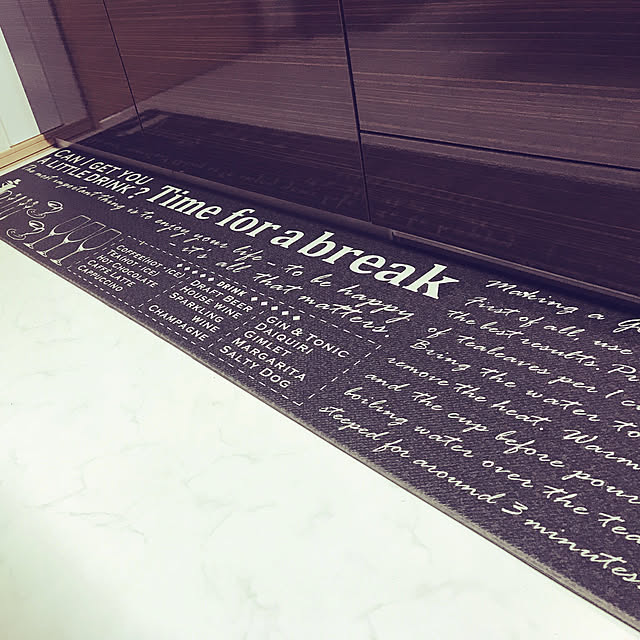 CAN I GET YOU
A LITTLE DRINK?
Time for a break
The most important thing is to enjoy your life - to be happy
it's all that matters
COFFEE(HOT/ICE)
TEA(HOT/ICE)
HOT CHOCOLATE
CAFFE LATTE
CAPPUCCINO
DRINK
DRAFT BEER
HOUSE WINE
SPARKLING
WINE
CHAMPAGNE
GIN & TONIC
DAIQUIRI
GIMLET
MARGARITA
SALTY DOG
Making a
First of all, use
the best results.
of tealeaves per 1
Bring the water to
remove the heat. Warm
and the cup before pour
boiling water over the tea
steeped for around 3 minutes